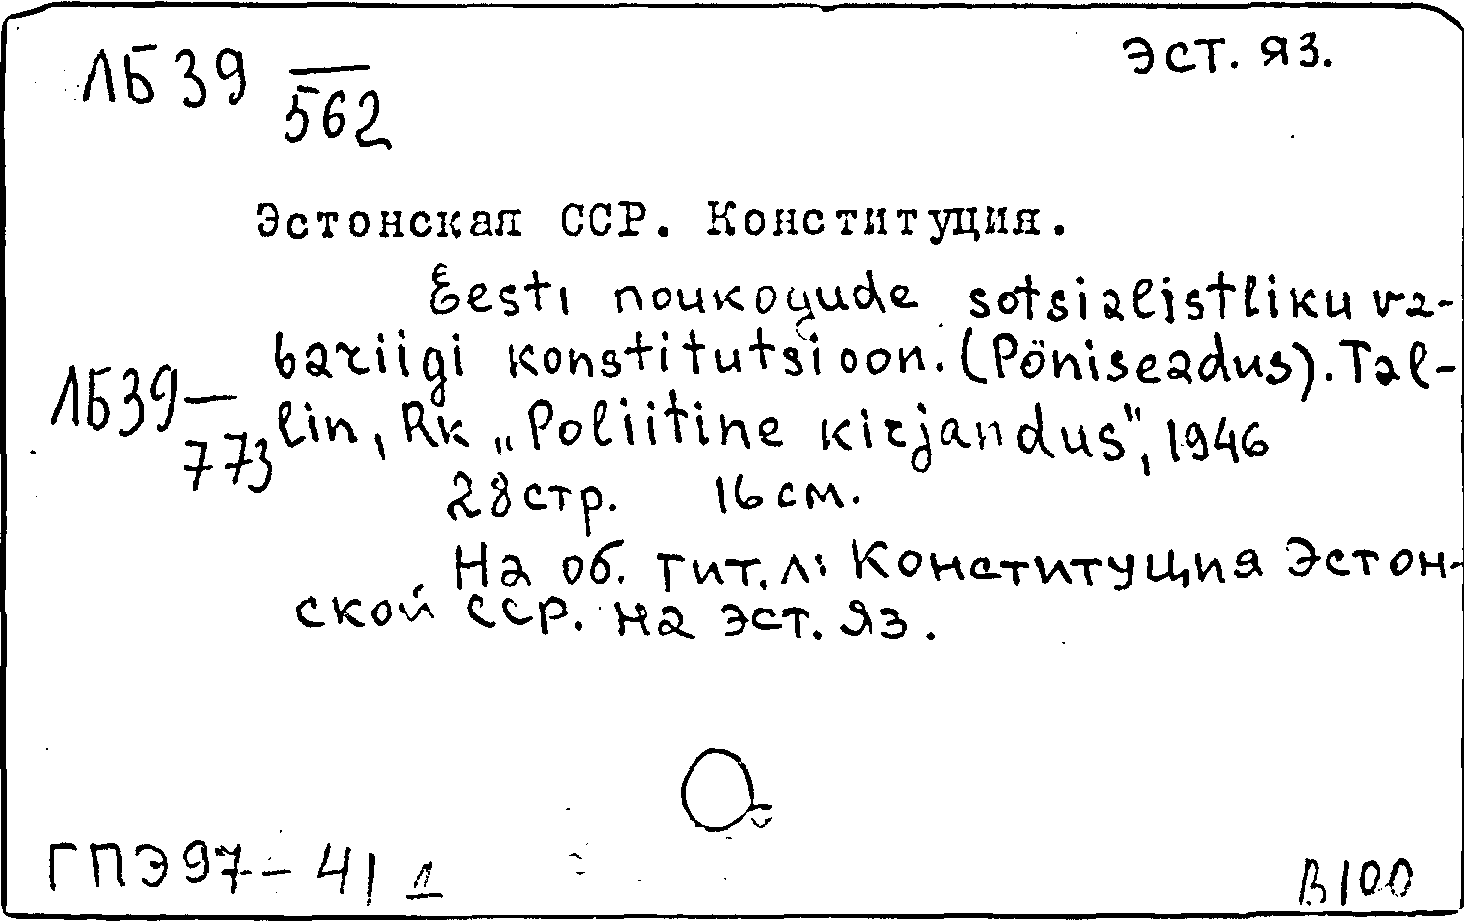 ЛБ39 —
562
Эст. яз.
Эстонская ССР. Конституция.
Eesti noukogude sotsialistliku va-
bariigi konstitutsioon. (Pöniseadus). Tal-
ЛБ39—
773
lin, Rk „Poliitine kirjandus", 1946
28 стр. 16 см.
На об. тит. л: Конституция Эстон-
ской ССР. на эст. яз.
ГПЭ 97-41
В100